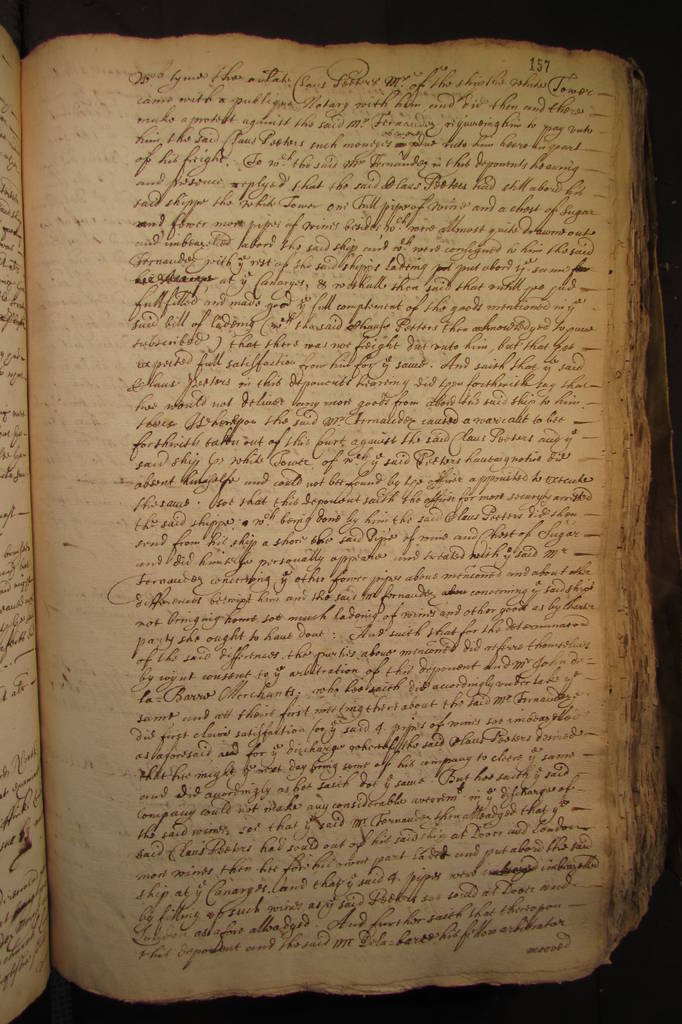 157
tyme the arlate Claus Peeters Mr. of the shipp the white Tower
came with a publique Notary with him and did then and there
make a protest against the said Mr. Fernandez requireing him to pay unto
him the said Claus Peeters such moneyes as were due unto him heere in part
of his freight. To wch the said Mr Fernandez in this deponents heareing
and presence replyed that the said Claus Peeters had still abord his
said shippe the white Tower one full pipe of wine and a chest of Sugar
and fower more pipes of wines besides wch were allmost quite drawne out
and imbeazelled abord the said ship and wch were consigned to him the said
Fernandez with ye rest of the said shipps ladeing put abord ye same
at ye Canaryes, & withall then said that untill hee had
fullfilled and made good ye full complement of the goods mentioned in ye
said bill of ladeing (wch the said Claus Peeters then acknowledged to have
subscribed) that there was noe freight due unto him, but that hee
expected full satisfaction from him for ye same. And saith that ye said
Claus Peeters in this deponents heareing did then forthwith say that
hee would not deliver any more goods from abord the said ship to him.
Whereupon the said Mr. Fernandez caused a warrant to bee
forthwith taken out of this Court against the said Claus Peeters and ye
said ship ye white Tower, of wch ye said Peeters haveing notice did
absent himselfe and could not bee found by ye officer appointed to execute
the same. soe that this deponent saith the officer for more security arrested
the said shippe, wch being done by him the said Claus Peeters did then
send from his ship a shore the said Pipe of wine and Chest of Sugar
and did himselfe personally appeare and treated with ye said Mr
Fernandez concerning ye other fower pipes above mencioned and about other
differences betwixt him and the said Mr Fernandez concerning ye said ships
not bringing home soe much ladeing of wines and other goods as by charter
party she ought to have done: And saith that for the determinacion
of the said differences the parties above mencioned did referre themselves
by joynt consent to ye arbitration of this deponent and Mr John de
la Barre Merchants; who hee saith did accordingly undertake ye
same and att their first meeting there about the said Mr Fernandez
did first claime satisfaction for ye said 4 pipes of wines soe imbeazelled
as aforesaid, and for ye discharge whereof the said Claus Peeters desired
that hee might ye next day bring some of his company to cleere ye same
and did accordingly as hee saith doe ye same. But hee saith ye said
company could not make any considerable averrmt in ye discharge of
the said wines, soe that ye said Mr Fernandez then alleadged that ye
said Claus Peeters had sould out of his said ship at Dover and London
more wines then hee for his owne part laded and put abord the said
ship at ye Canaryes, and that ye said 4 pipes were imbeazelled
by filling up such wines as ye said Peeters soe sould at Dover and
London as afore alleadged. And further saith that thereupon
this deponent and the said Mr Dela-barre his fellow arbitrator
moved